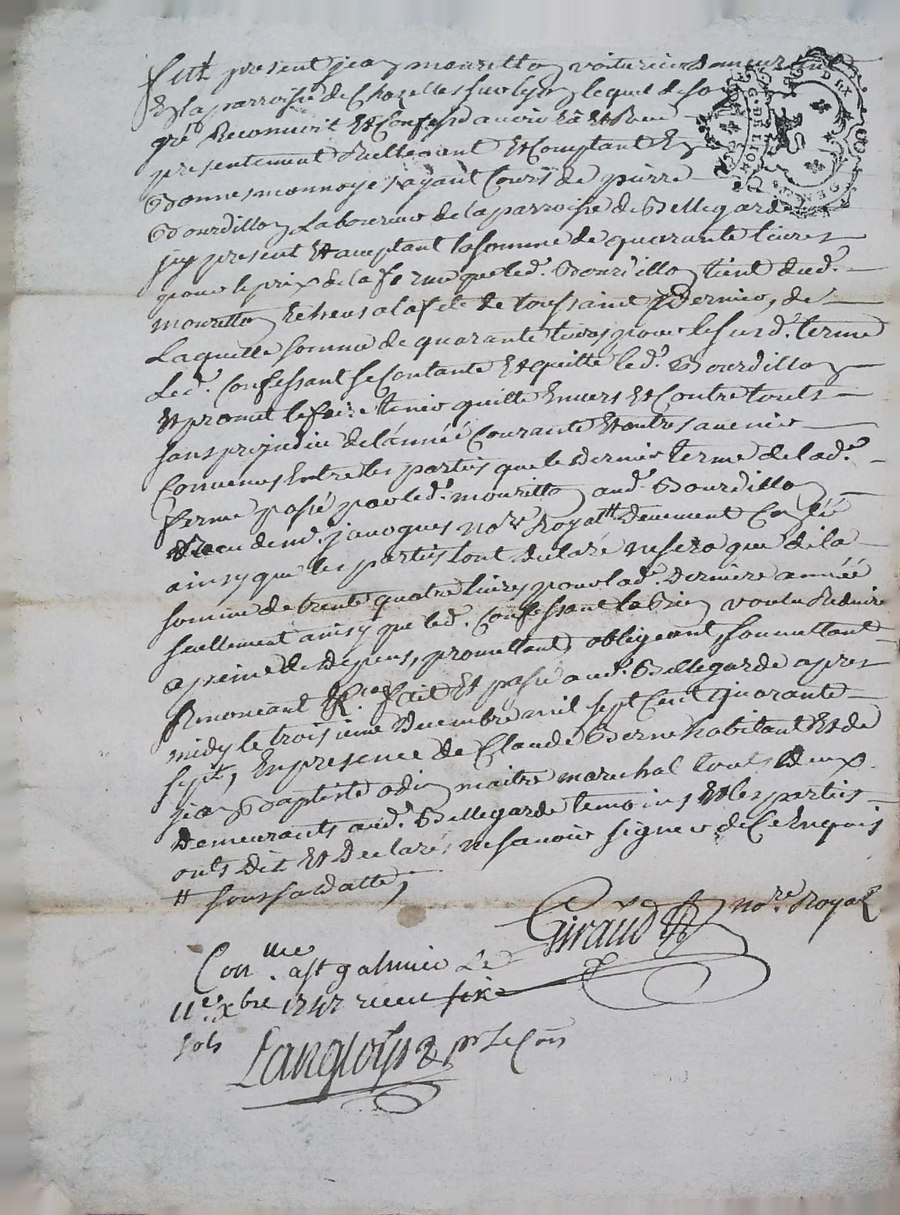 fut present jean mouretton voiturier demeurant
En la parroisse de Chazelles sur lyon lequel de son
gré Reconnoit Et Confesse avoir Eû Et Receu
presentement Reellement Et Comptant En
Bonnes monnoyes ayant Cours de pierre
Bourdillon Laboureur de la parroisse de Bellegarde
icy present Et acceptant la somme de quarante livres
pour le prix de la ferme que led. Bourdillon tient dud.
mouretton Echeus a la fete de toussaint Dernier, de
Laquelle somme de quarante livres pour le susd. terme
Led. Confessant se Contante Et quitte led. Bourdillon
Et promet le faire tenir quitte Envers Et Contre touts
sans prejudice de l'année Courante Et autres a venir
Convenus Entre les parties que le Dernier terme de lad.
ferme passé par led. mouretton aud. Bourdillon
Receu de me. janoques nore. Royal Duement
ainsy que les parties l'ont Declaré ne sera que de la
somme de trente quatre livres pour lad. Derniere année
seullement ainsy que led. Confessant l'a Bien voulu Reduire
a peine de Depens, promettant, obligeant, soumettant
Renonceant &c. fait Et passé aud. Bellegarde apres
midy le troisieme Decembre mil sept Cent quarante
sept, En presence de Claude Berne habitant Et de
jean Baptiste odin maitre marechal touts deux
Demeurants aud. Bellegarde temoins Et les parties
onts Dit Et Declaré ne sçavoir signer de Ce Enquis
Et
GIRAUD nore Royal
Conlle. a st galmier Le
11e. xbre 1747 receu six
sols
Langlois pr Le Con
G. DE LION